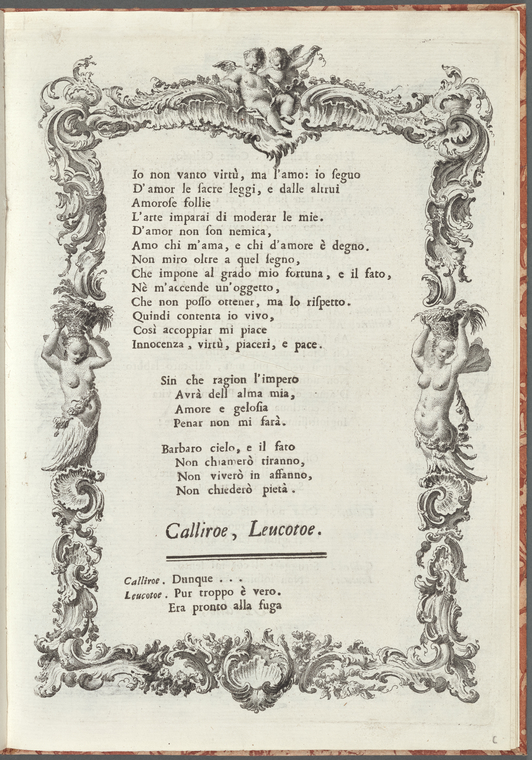 Io non vanto virtù, ma l'amo: io ſeguo
D'amor le ſacre leggi, e dalle altrui
Amoroſe follie
L'arte imparai di moderar le mie.
D'amor non ſon nemica,
Amo chi m'ama, e chi d'amore è degno.
Non miro oltre a quel ſegno,
Che impone al grado mio fortuna, e il fato,
Nè m'accende un'oggetto,
Che non poſſo ottener, ma lo riſpetto.
Quindi contenta io vivo,
Così accoppiar mi piace
Innocenza, virtù, piaceri, e pace.
Sin che ragion l'impero
Avrà dell alma mia,
Amore e geloſia
Penar non mi farà.
Barbaro cielo, e il fato
Non chiamerò tiranno,
Non viverò in affanno,
Non chiederò pietà.
Calliroe, Leucotoe.
Calliroe. Dunque . . .
Leucotoe. Pur troppo è vero.
Era pronto alla fuga